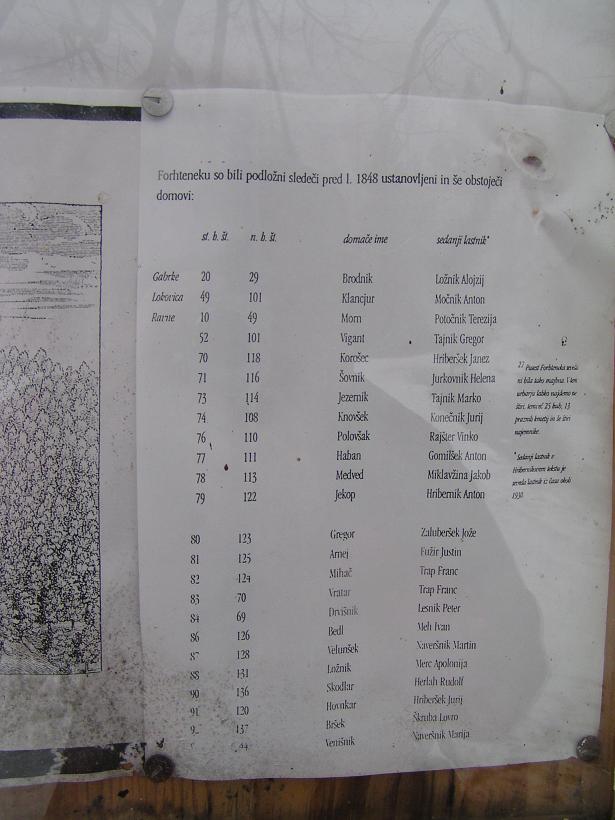 Forhteneku so bili podložni sledeči pred l. 1848 ustanovljeni in še obstoječi
domovi:
st. b. št. n. b. št. domače ime sedanji lastnik*
Gaberke 20 29 Brodnik Ložnik Alojzij
Lokovica 49 101 Klancjur Močnik Anton
Ravne 10 49 Morn Potočnik Terezija
52 101 Vigant Tajnik Gregor
70 118 Korošec Hriberšek Janez
71 116 Šovnik Jurkovnik Helena
73 114 Jezernik Tajnik Marko
74 108 Knovšek Konečnik Jurij
76 110 Polovšak Rajšter Vinko
77 111 Haban Gomilšek Anton
78 113 Medved Miklavžina Jakob
79 122 Jekop Hribernik Anton
80 123 Gregor Zaluberšek Jože
81 125 Arnej Fužir Justin
82 124 Mihač Trap Franc
83 70 Vratar Trap Franc
84 69 Drvišnik Lesnik Peter
86 126 Bedl Meh Ivan
87 128 Velunšek Naveršnik Martin
88 131 Ložnik Merc Apolonija
90 136 Skodlar Herlah Rudolf
91 120 Hovnkar Hriberšek Jurij
137 Bršek Škruba Lovro
Naveršnik Marija
27 Posest Forhteneka seveda
ni bila tako majhna. V tem
urbarju lahko najdemo se
* Sedanji lastnik v
Hribernikovem tekstu je
seveda lastnik iz časa okoli
1930.